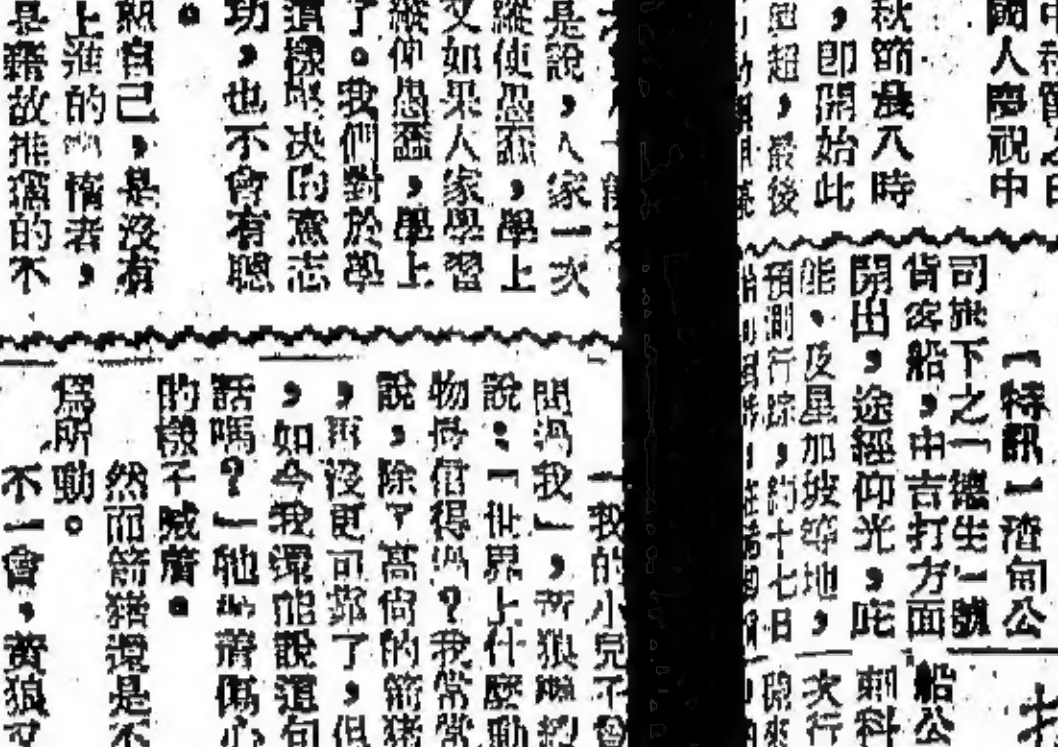 國人慶祝中
秋節晨八時
，即開始此
超，最後
【特訊】渣甸公
司旗下之「德生」號
貨客船，由吉打方面
開出，途經仰光，庇
能，及星加坡等地，
預測行踪，約十七日
船公
刺科
次行
是說，人家一次
縱使愚蠢，學上
又如果人家學習
縱使愚蠢，學上
了。我們對於學
這樣堅決的意志
功，也不會有聰
。
照自己，是沒有
上進的懶惰者，
是藉故推諉的不
「我的小兒不會
問過我」，黃狼
說：「世界上什麼動
物最信得過？我常常
說，除了高尚的箭猪
，再沒更可靠了，但
，如今我還能說這句
話嗎？」牠帶傷心
的樣子喊着。
然而箭豬還是不
爲所動。
不一會，黃狼又